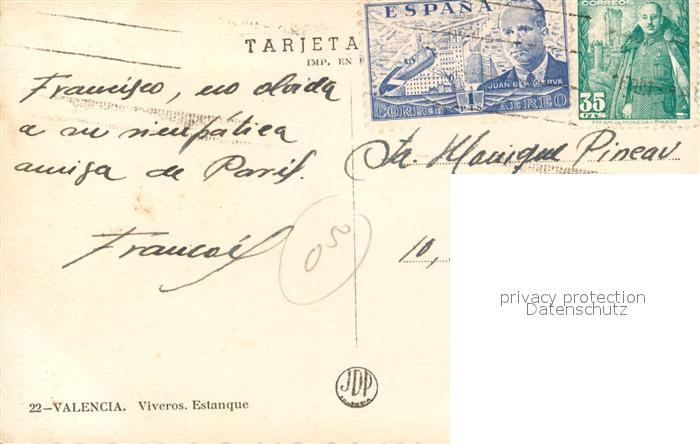 ESPAÑA
CORREOS
TARJETA
IMP. EN
JUAN DE LA CIERVA
CORREO 1 AEREO
35
CTS
Francisco, no olvida
a su simpática
amiga de Paris.
Sta. Monique Pineau
50
10,
privacy protection
Datenschutz
JDP
VALENCIA
22—VALENCIA. Viveros. Estanque